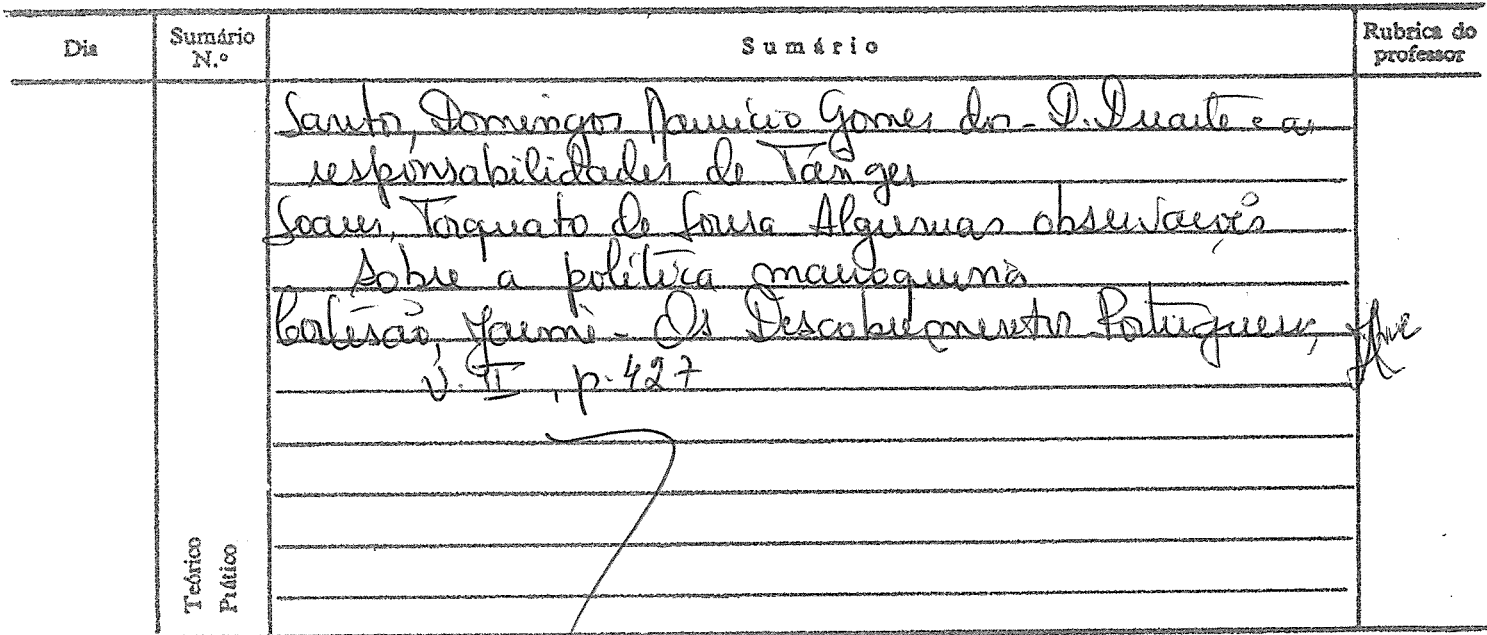 Dia
Sumário N.º
Sumário
Rubrica do professor
Santos, Domingos Maurício Gomes dos - D. Duarte e as
responsabilidades de Tânger
Soares, Torquato de Sousa Algumas observações
sobre a política marroquina
Cortesão, Jaime - Os Descobrimentos Portugueses,
v. II, p. 427
Teórico
Prático